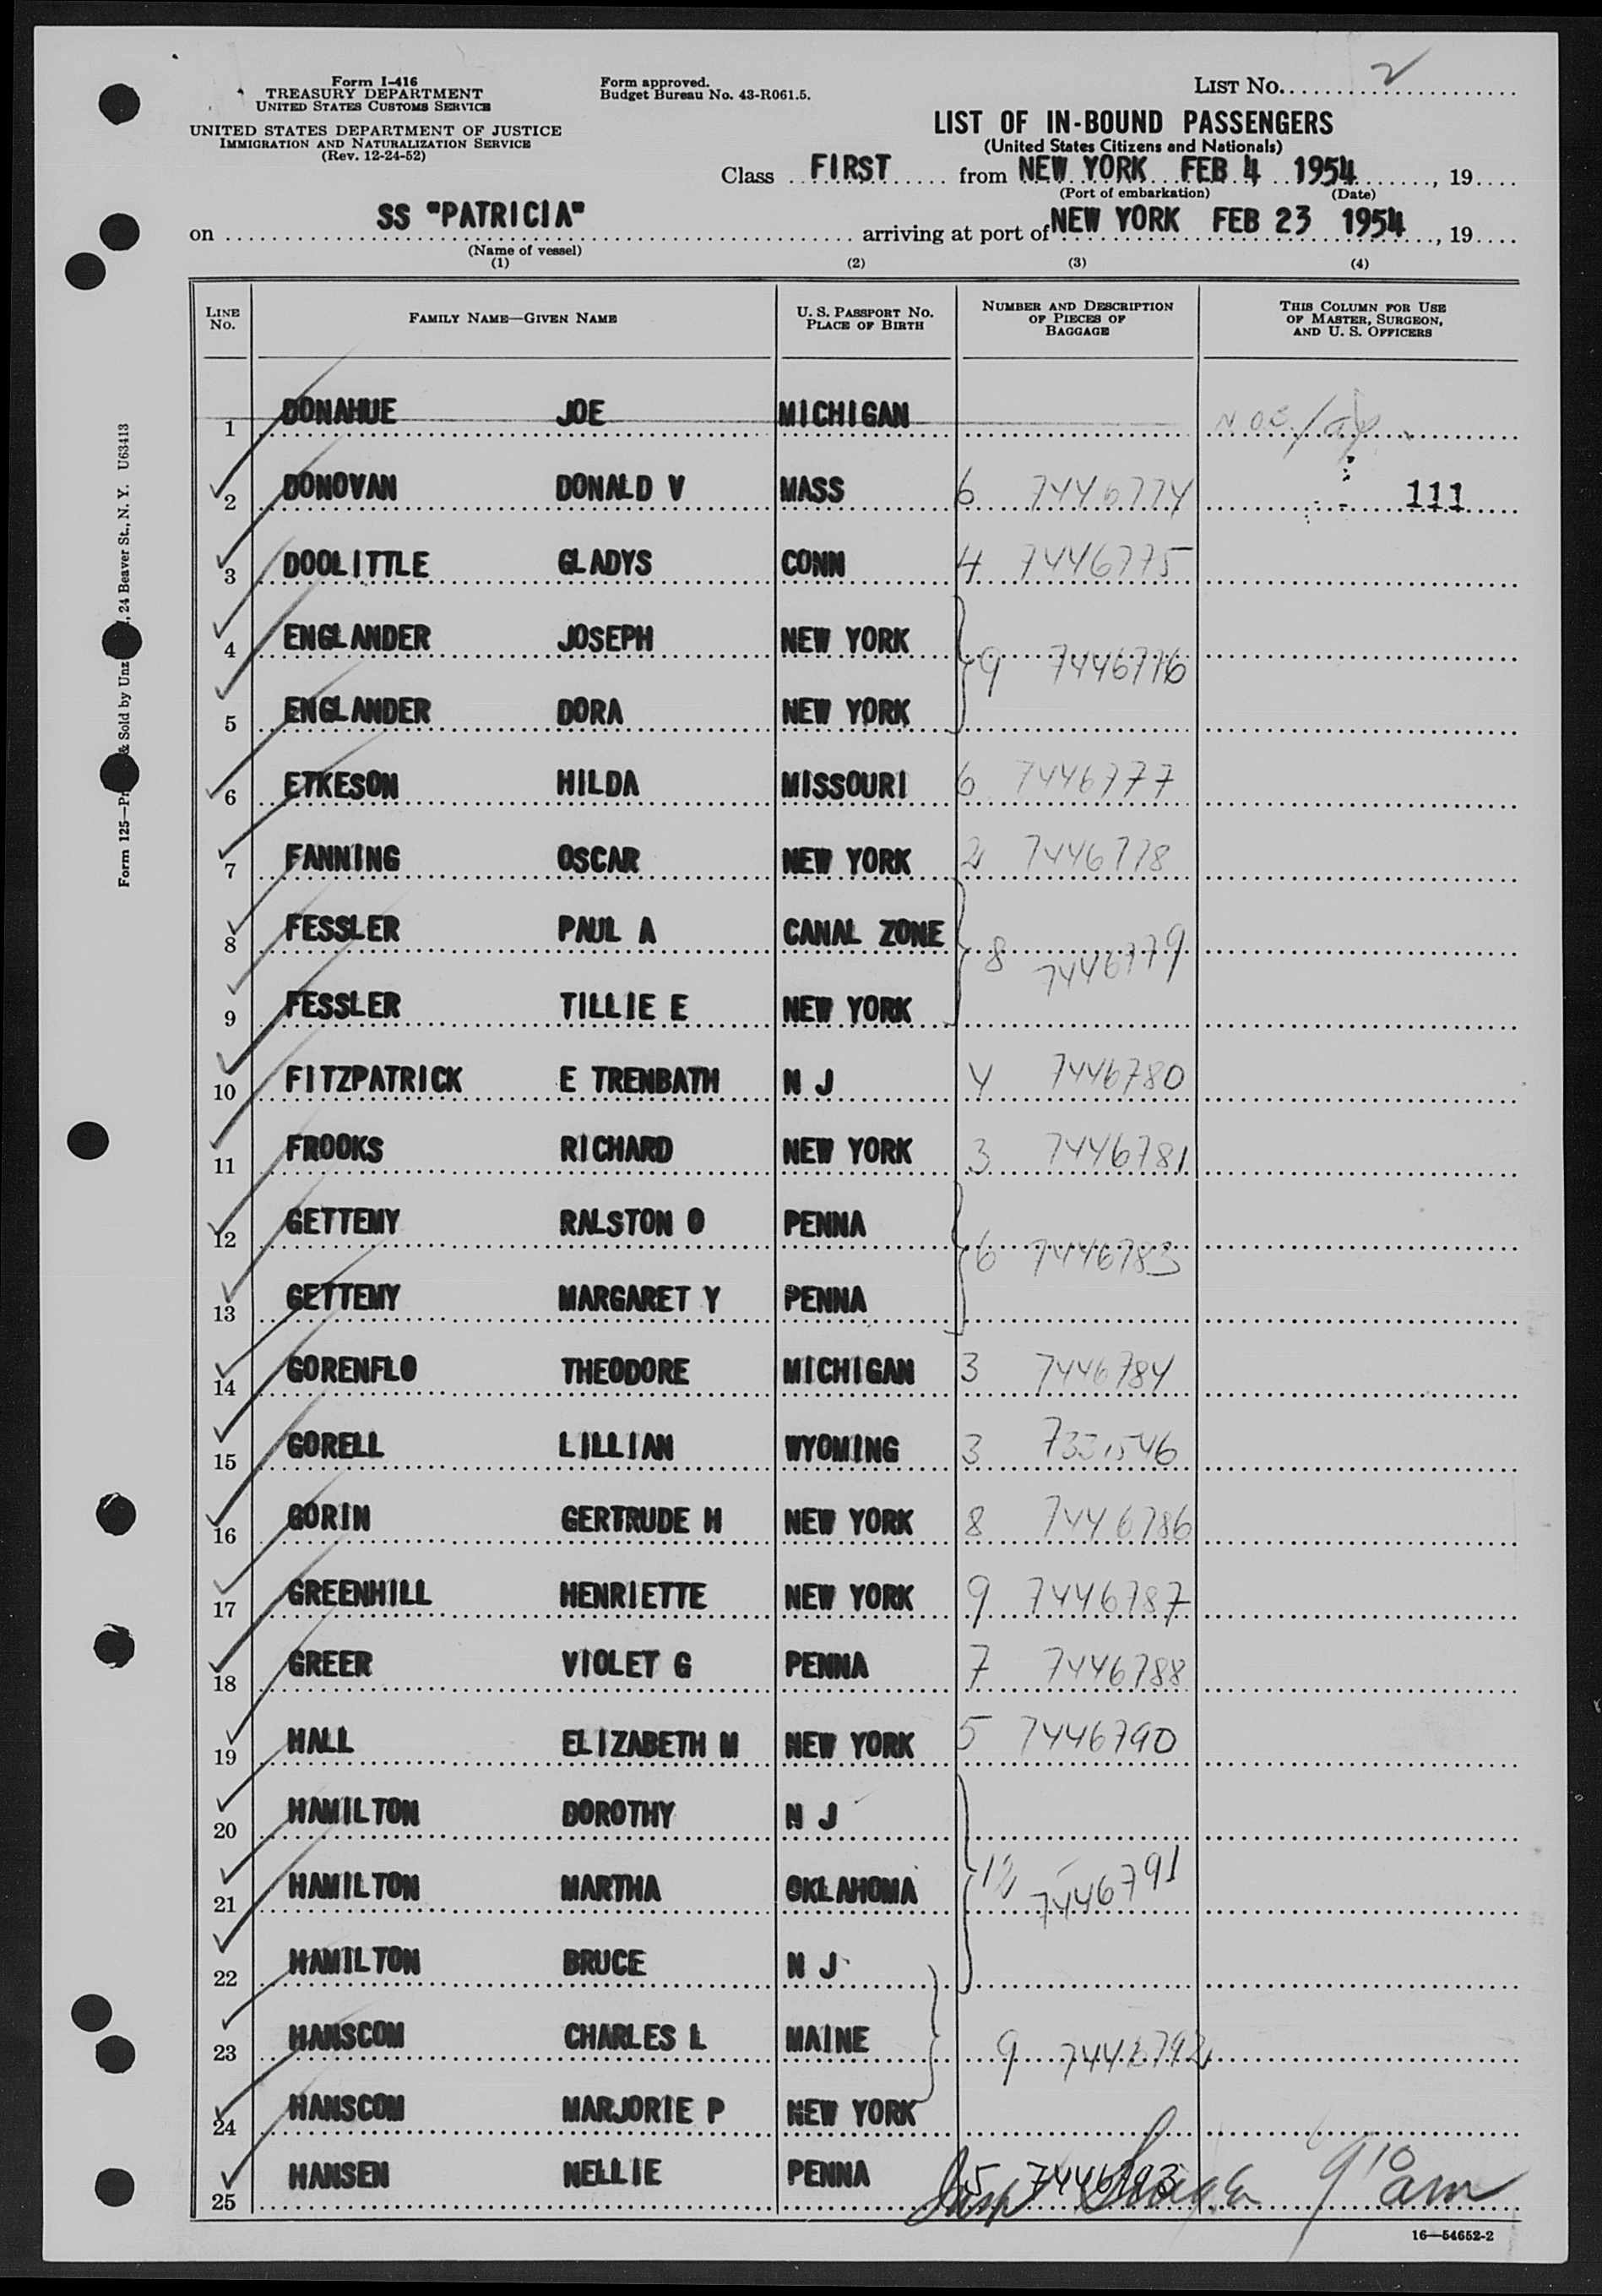 Form I-416
TREASURY DEPARTMENT
UNITED STATES CUSTOMS SERVICE
UNITED STATES DEPARTMENT OF JUSTICE
IMMIGRATION AND NATURALIZATION SERVICE
(Rev. 12-24-52)
Form approved.
Budget Bureau No. 43-R061.5.
LIST No. 2
LIST OF IN-BOUND PASSENGERS
(United States Citizens and Nationals)
Class FIRST from NEW YORK FEB 4 1954, 19
(Port of embarkation) (Date)
on SS "PATRICIA" arriving at port of NEW YORK FEB 23 1954, 19
(Name of vessel)
(1) (2) (3) (4)
LINE No. FAMILY NAME—GIVEN NAME U. S. PASSPORT No. PLACE OF BIRTH NUMBER AND DESCRIPTION OF PIECES OF BAGGAGE THIS COLUMN FOR USE OF MASTER, SURGEON, AND U. S. OFFICERS
1 DONAHUE JOE MICHIGAN
2 DONOVAN DONALD V MASS 6 7446774 111
3 DOOLITTLE GLADYS CONN 4 7446775
4 ENGLANDER JOSEPH NEW YORK 9 7446776
5 ENGLANDER DORA NEW YORK
6 ETKESON HILDA MISSOURI 6 7446777
7 FANNING OSCAR NEW YORK 2 7446778
8 FESSLER PAUL A CANAL ZONE 8 7446779
9 FESSLER TILLIE E NEW YORK
10 FITZPATRICK E TRENBATH N J 4 7446780
11 FROOKS RICHARD NEW YORK 3 7446781
12 GETTEMY RALSTON O PENNA 6 7446783
13 GETTEMY MARGARET Y PENNA
14 GORENFLO THEODORE MICHIGAN 3 7446784
15 GORELL LILLIAN WYOMING 3
16 GORIN GERTRUDE H NEW YORK 8 7446786
17 GREENHILL HENRIETTE NEW YORK 9 7446787
18 GREER VIOLET G PENNA 7 7446788
19 HALL ELIZABETH M NEW YORK 5 7446790
20 HAMILTON DOROTHY N J
21 HAMILTON MARTHA OKLAHOMA 12 7446791
22 HAMILTON BRUCE N J
23 HANSCOM CHARLES L MAINE 9 7446792
24 HANSCOM MARJORIE P NEW YORK
25 HANSEN NELLIE PENNA 5 7446793 9 10 am
16—54652-2
Form 125—Pr & Sold by Unz , 24 Beaver St., N. Y. U63413